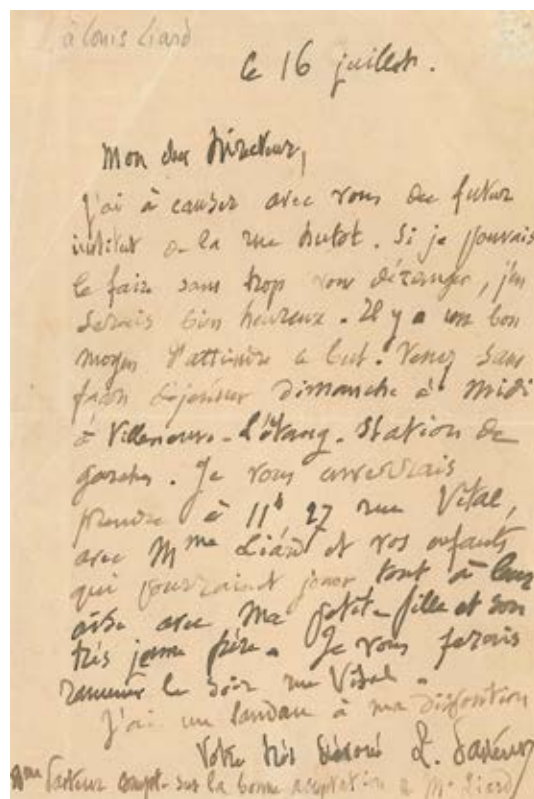 à Louis Liard
le 16 juillet.
Mon cher Directeur,
J'ai à causer avec vous du futur
institut de la rue Dutot. Si je pouvais
le faire sans trop vous déranger, j'en
serais bien heureux. Il y a un bon
moyen d'atteindre ce but. Venez sans
façon déjeuner dimanche à midi
à Villeneuve-l'étang. Station de
garches. Je vous enverrais
prendre à 11h, 27 rue Vital,
avec Mme Liard et vos enfants
qui pourraient jouer tout à leur
aise avec ma petite fille et son
très jeune frère. Je vous ferais
ramener le soir rue Vital.
J'ai un landau à ma disposition
Votre très dévoué L. Pasteur
Mme Pasteur compte sur la bonne acceptation de Me Liard